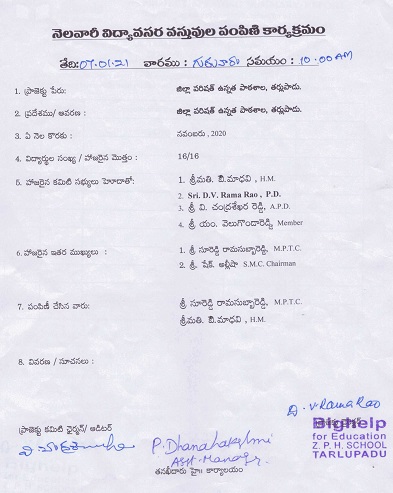 నెలవారీ విద్యావసర వస్తువుల పంపిణి కార్యక్రమం
తేది: 07.01.21 వారము : గురువారం సమయం : 10.00AM
1. ప్రాజెక్టు పేరు: జిల్లా పరిషత్ ఉన్నత పాఠశాల, తర్లుపాడు.
2. ప్రదేశము/ ఆవరణ : జిల్లా పరిషత్ ఉన్నత పాఠశాల, తర్లుపాడు.
3. ఏ నెల కొరకు : నవంబరు, 2020
4. విద్యార్థుల సంఖ్య / హాజరైన మొత్తం : 16/16
5. హాజరైన కమిటి సభ్యులు హెూదాతో: 1. శ్రీమతి. పి.మాధవి , H.M.
2. Sri. D.V. Rama Rao , P.D.
3. శ్రీ వి. చంద్రశేఖర రెడ్డి, A.P.D.
4. శ్రీ యం. వెలుగొండారెడ్డి Member
6. హాజరైన ఇతర ముఖ్యులు : 1. శ్రీ సూరెడ్డి రామసుబ్బారెడ్డి, M.P.T.C.
2. శ్రీ. షేక్. అల్లీషా S.M.C. Chairman
7. పంపిణీ చేసిన వారు: శ్రీ సూరెడ్డి రామసుబ్బారెడ్డి, M.P.T.C.
శ్రీమతి. పి.మాధవి , H.M.
8. వివరణ / సూచనలు :
D. V Rama Rao
ప్రాజెక్టు కమిటి ఛైర్మన్/ ఆడిటర్
BigHelp
for Education
Z. P. H. SCHOOL
TARLUPADU
P. Dhanalakshmi
Asst. Manager
తనఖీదారు హెచ్ కార్యాలయం